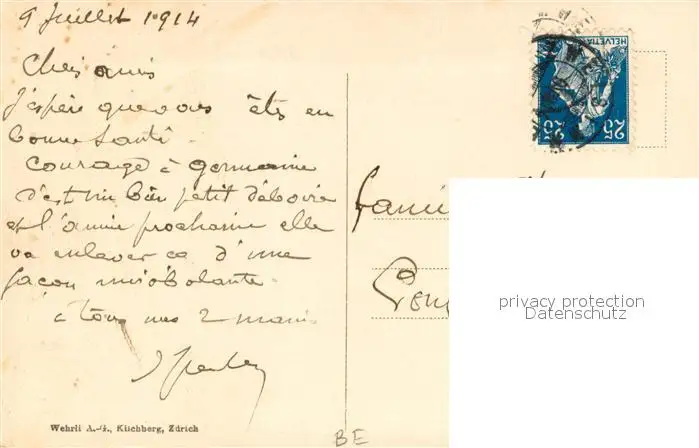 9 Juillet 1914
Chers amis
J'espère que vous êts en
bonne santé.
Courage à Germaine
c'est un bien petit déboire
et l'année prochaine elle
va enlever ça d'une
façon mirobolante.
à tous mes 2 mains
HELVETIA
25 25
Fami
privacy protection
Datenschutz
Wehrli A.-G., Kilchberg, Zürich
BE